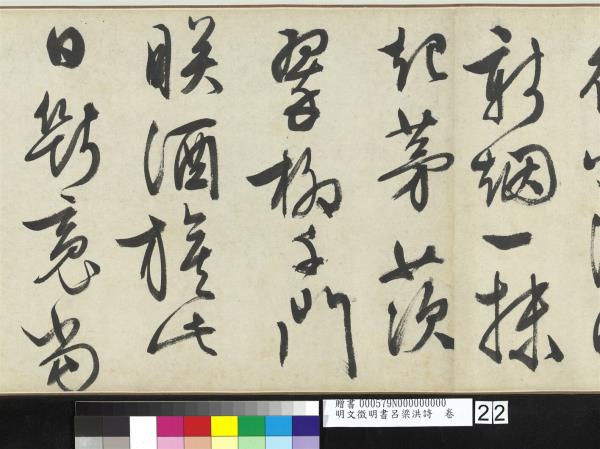 新烟一抹
起茅茨
翠柳千門
映酒旗此
日斷意當
贈書 000579N000000000
明文徵明書呂梁洪詩 卷
22